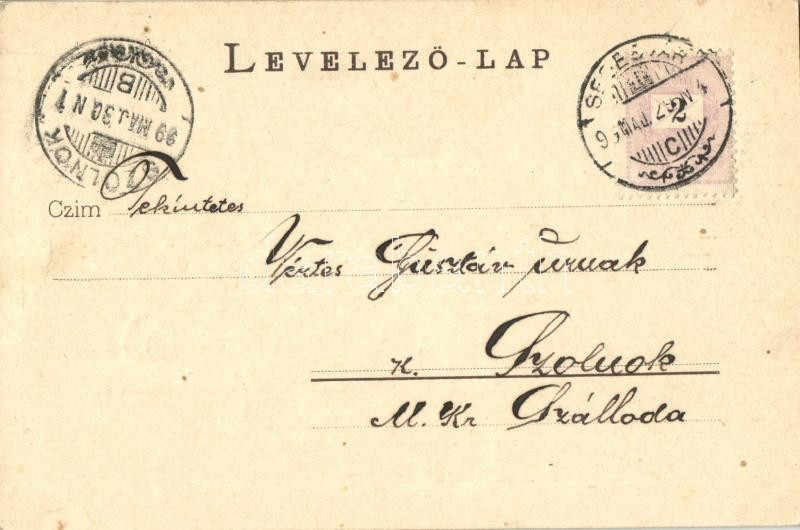 LEVELEZŐ-LAP
SZOLNOK
99 MÁJ. 30 N 1
B
99 MÁJ. 29 N 4
C
2
Czim Tekintetes
Vértes Gusztáv urnak
Szolnok
M. Kr Szálloda